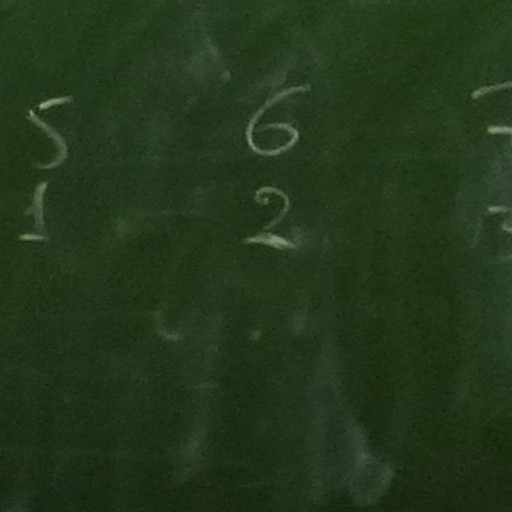 5 6
1 2